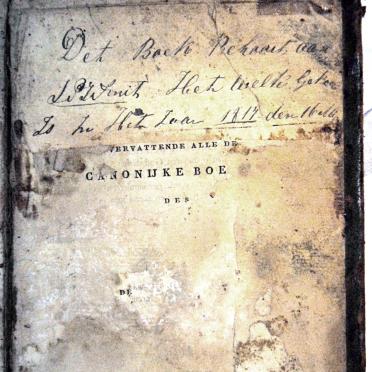 Det Boek Behoort aan
Smit Het welk Geko
Is in Het Jaar 1817 den 16
VERVATTENDE ALLE DE
CANONIJKE BOE
DES
DE